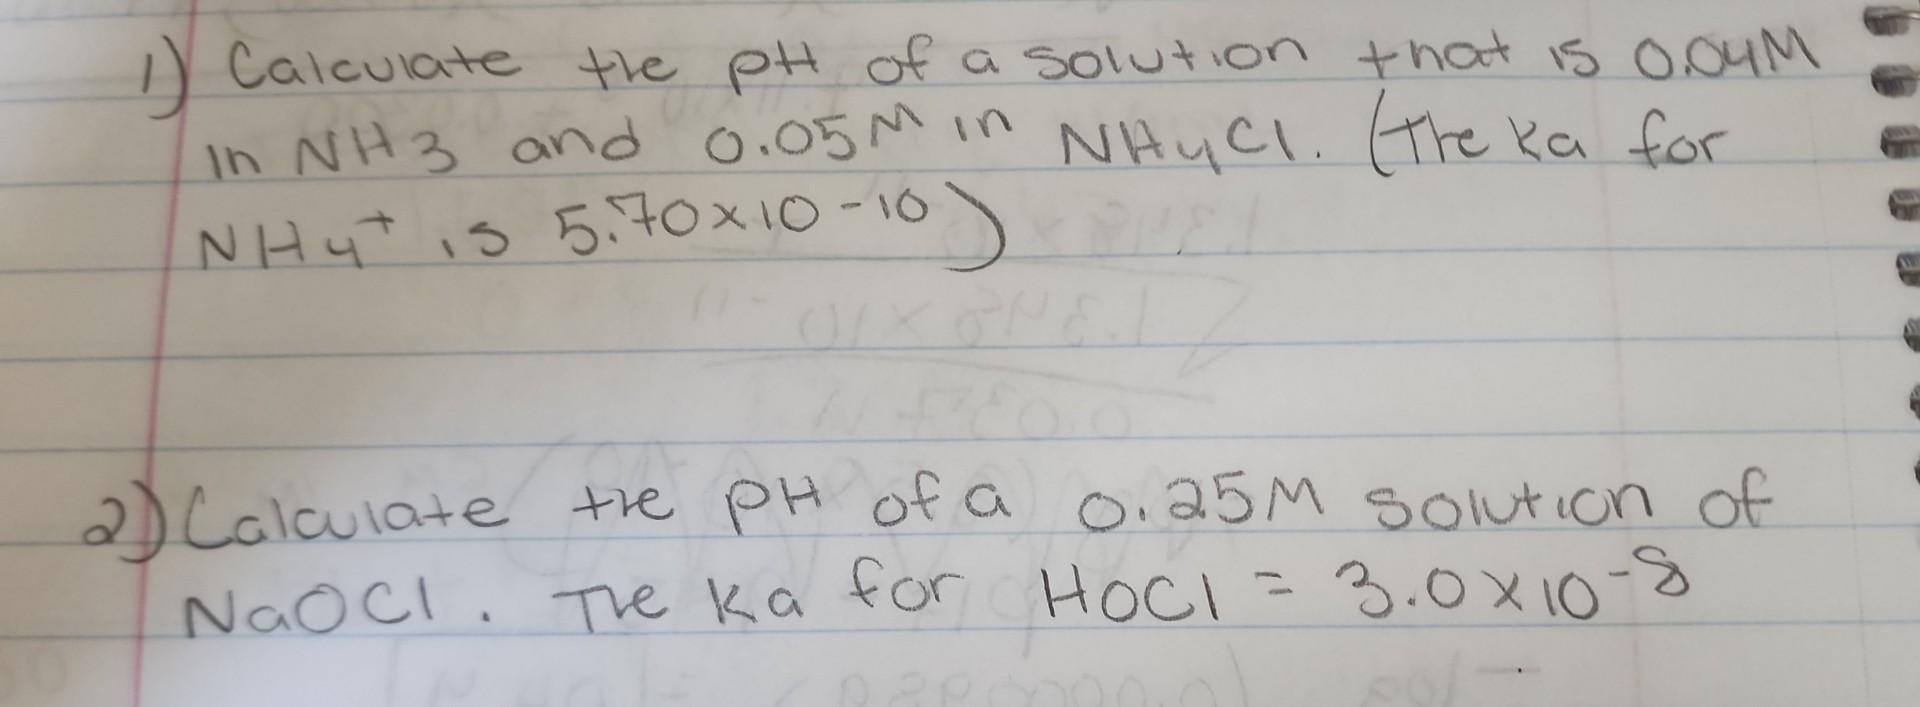 1) Calculate the pH of a solution that is 0.04M
in NH3 and 0.05M in NH4Cl. (The Ka for
NH4+ is 5.70x10-10)
2) Calculate the pH of a 0.25M solution of
NaOCl. The Ka for HOCl = 3.0x10-8